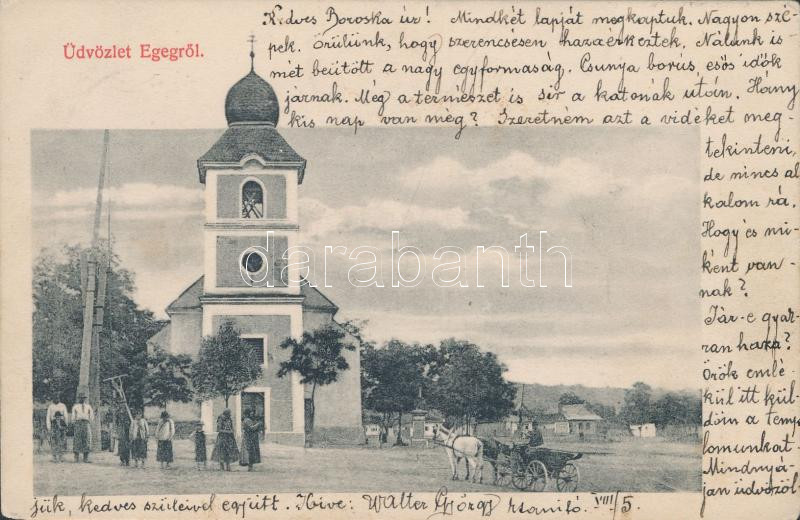 Üdvözlet Egegről.
Kedves Boroska úr! Mindkét lapját megkaptuk. Nagyon szé-
pek. Örülünk, hogy szerencsésen hazaérkeztek. Nálunk is
mét beütött a nagy egyformaság. Csunya borus, esős idők
járnak. Még a természet is sir a katonák után. Hány
kis nap van még? Szeretném azt a vidéket meg-
tekinteni,
de nincs al
kalom rá.
Hogy és mi-
ként van-
nak?
Jár-e gyak-
ran haza?
Örök emlé-
kül itt kül-
döm a temp
lomunkat.
Mindnyá-
jan üdvözöl-
jük, kedves szüleivel együtt. Hive: Walter György tanító. VIII/5.
darabanth